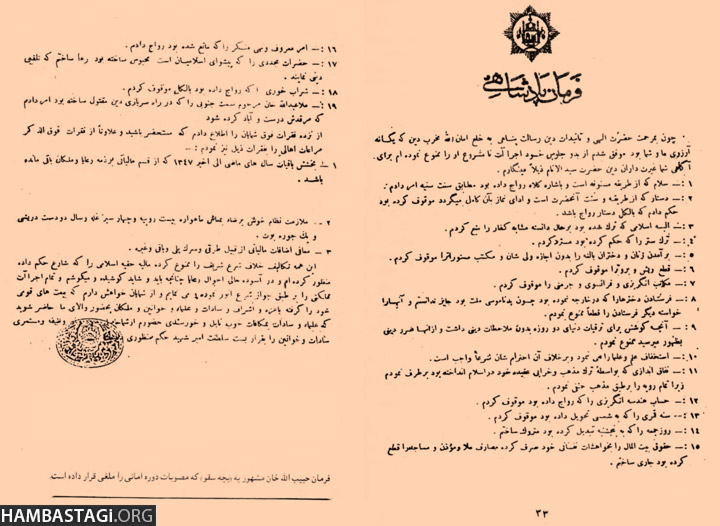 فرمان پادشاهی
چون بمرحمت حضرت الهی و تائیدات دین رسالت پناهی به خلع امان الله مخرب دین که یگانه
آرزوی ما و شما بود موفق شدم از بدو جلوس خود اجراآت نامشروع او را ممنوع نموده ام برای
آگاهی شما غیرت داران دین حضرت سید الانام ذیلاً مینگارم .
۱ :— سلام که از طریقه مسنونه است و باشاره کلاه رواج داده بود مطابق سنت سنیه امر دادم .
۲ :— دستار که از طریقه و سنت آنحضرت است و ادای نماز بآن کامل میگردد موقوف کرده بود
حکم دادم که بالکل دستار رواج باشد .
۳ :— البسه اسلامی که ترک شده بود برحال دانسته مشابه کفار را منع کردم .
۴ :— ترک ستر را که حکم کرده بود مسترد کردم .
۵ :— برآمدن زنان و دختران بالغه را بدون اجازه ولی شان و مکتب مستورات را موقوف کردم .
۶ :— قطع ریش و بروت را موقوف کردم .
۷ :— مکتب انگریزی و فرانسوی و جرمنی را موقوف کردم .
۸ :— فرستادن دخترها را که در خارجه نموده بود چون بدناموسی ملت بود جایز ندانستم و آنها را
خواسته دیگر فرستادن را قطعاً ممنوع نمودم .
۹ :— آنچه کوشش برای ترقیات دنیای دو روزه بدون ملاحظات دینی داشت و از آنها ضرر دینی
بظهور میرسید ممنوع نمودم .
۱۰ :— استخفاف علم و علما را می نمود و برخلاف آن احترام شان شرعاً واجب است .
۱۱ :— نفاق اندازی که بواسطهٔ ترک مذهب و خرابی عقیده خود در اسلام انداخته بود برطرف نمودم
زیرا تمام رویه را برطبق مذهب حنفی نمودم .
۱۲ :— حساب هندسه انگریزی را که رواج داده بود موقوف کردم .
۱۳ :— سنه قمری را که به شمسی تحویل داده بود موقوف کردم .
۱۴ :— روز جمعه را که به پنجشنبه تبدیل کرده بود متروک ساختم .
۱۵ :— حقوق بیت المال را بخواهشات نفسانی خود صرف کرده مصارف ملا و مؤذن و مساجد را قطع
کرده بود جاری ساختم .
۳۳
۱۶ :— امر معروف و نهی منکر را که مانع شده بود رواج دادم .
۱۷ :— حضرات مجددی را که پیشوای اسلامیان است محبوس ساخته بود رها ساختم که تلقین
دینی نمایند .
۱۸ :— شراب خوری را که رواج داده بود بالکل موقوف کردم .
۱۹ :— ملا عبدالله خان مرحوم سمت جنوبی را که در راه سربازی دین مقتول ساخته بود امر دادم
که مرقدش درست و آباد کرده شود
از نزده فقرات فوق شمایان را اطلاع دادم که مستحضر باشید و علاوتاً از فقرات فوق الذکر
مراعات اهالی را فقرات ذیل نیز نمودم : —
۱ — بخشش باقیات سال های ماضی الی اخیر ۱۳۴۷ که از قسم مالیاتی برذمه رعایا و ملکان باقی مانده
باشد .
۲ — ملازمت نظام خوش برضاء بمعاش ماهواره بیست روپیه و چهار سیر غله و سال دو دست دریشی
و یک جوره بوت .
۳ — معافی اضافات مالیاتی از قبیل طرقی و سرک پلی و باقی وغیره .
این همه تکالیف خلاف شرع شریف را ممنوع کرده مالیه حقه اسلامی را که شارع حکم داده
منظور کرده ام و در آسوده حالی احوال رعایا چنانچه باید و شاید کوشیده و میکوشم و تمام اجراآت
مملکتی را بر طبق جواز شرع انور نموده و می نمایم و از شمایان خواهش دارم که بیعت های قومی
خود را گرفته بامزه و اشراف و سادات و علماء و خوانین و ملکان بحضور والای ما حاضر شوید
که علماء و سادات بمکافات خوب نایل و خورسندی حضورم وظیفه و مستمری
سادات و خوانین را بقرار بست سلطنت امیر شهید حکم منظوری
فرمان حبیب الله خان مشهور به (بچه سقو) که مصوبات دوره امانی را ملغی قرار داده است.
HAMBASTAGI.ORG